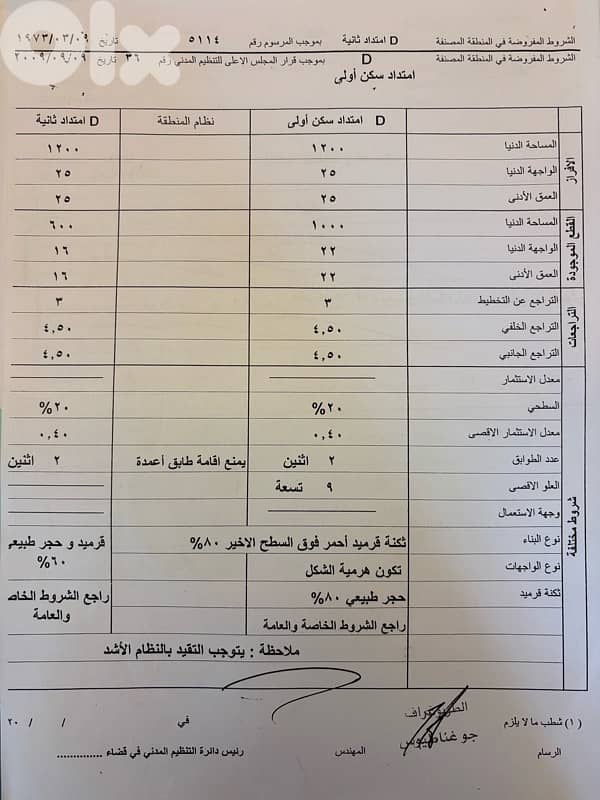 الشروط المفروضة في المنطقة المصنفة D امتداد ثانية بموجب المرسوم رقم ٥١١٤ تاريخ ١٩٧٣/٠٣/٠٩
الشروط المفروضة في المنطقة المصنفة D بموجب قرار المجلس الاعلى للتنظيم المدني رقم ٣٦ تاريخ ٢٠٠٩/٠٩/٠٩
امتداد سكن أولى
olx
D امتداد سكن أولى نظام المنطقة D امتداد ثانية
الافراز
المساحة الدنيا ١٢٠٠ ١٢٠٠
الواجهة الدنيا ٢٥ ٢٥
العمق الأدنى ٢٥ ٢٥
القطع الموجودة
المساحة الدنيا ١٠٠٠ ٦٠٠
الواجهة الدنيا ٢٢ ١٦
العمق الأدنى ٢٢ ١٦
التراجعات
التراجع عن التخطيط ٣ ٣
التراجع الخلفي ٤,٥٠ ٤,٥٠
التراجع الجانبي ٤,٥٠ ٤,٥٠
شروط مختلفة
معدل الاستثمار
السطحي ٢٠% ٢٠%
معدل الاستثمار الاقصى ٠,٤٠ ٠,٤٠
عدد الطوابق ٢ اثنين يمنع اقامة طابق أعمدة ٢ اثنين
العلو الاقصى ٩ تسعة
وجهة الاستعمال
نوع البناء ثكنة قرميد أحمر فوق السطح الاخير ٨٠% قرميد و حجر طبيعي
٦٠%
نوع الواجهات تكون هرمية الشكل
ثكنة قرميد حجر طبيعي ٨٠% راجع الشروط الخاصة
والعامة
راجع الشروط الخاصة والعامة
ملاحظة : يتوجب التقيد بالنظام الأشد
(١) شطب ما لا يلزم في / / ٢٠
جو غناطيوس
الرسام المهندس رئيس دائرة التنظيم المدني في قضاء ..............